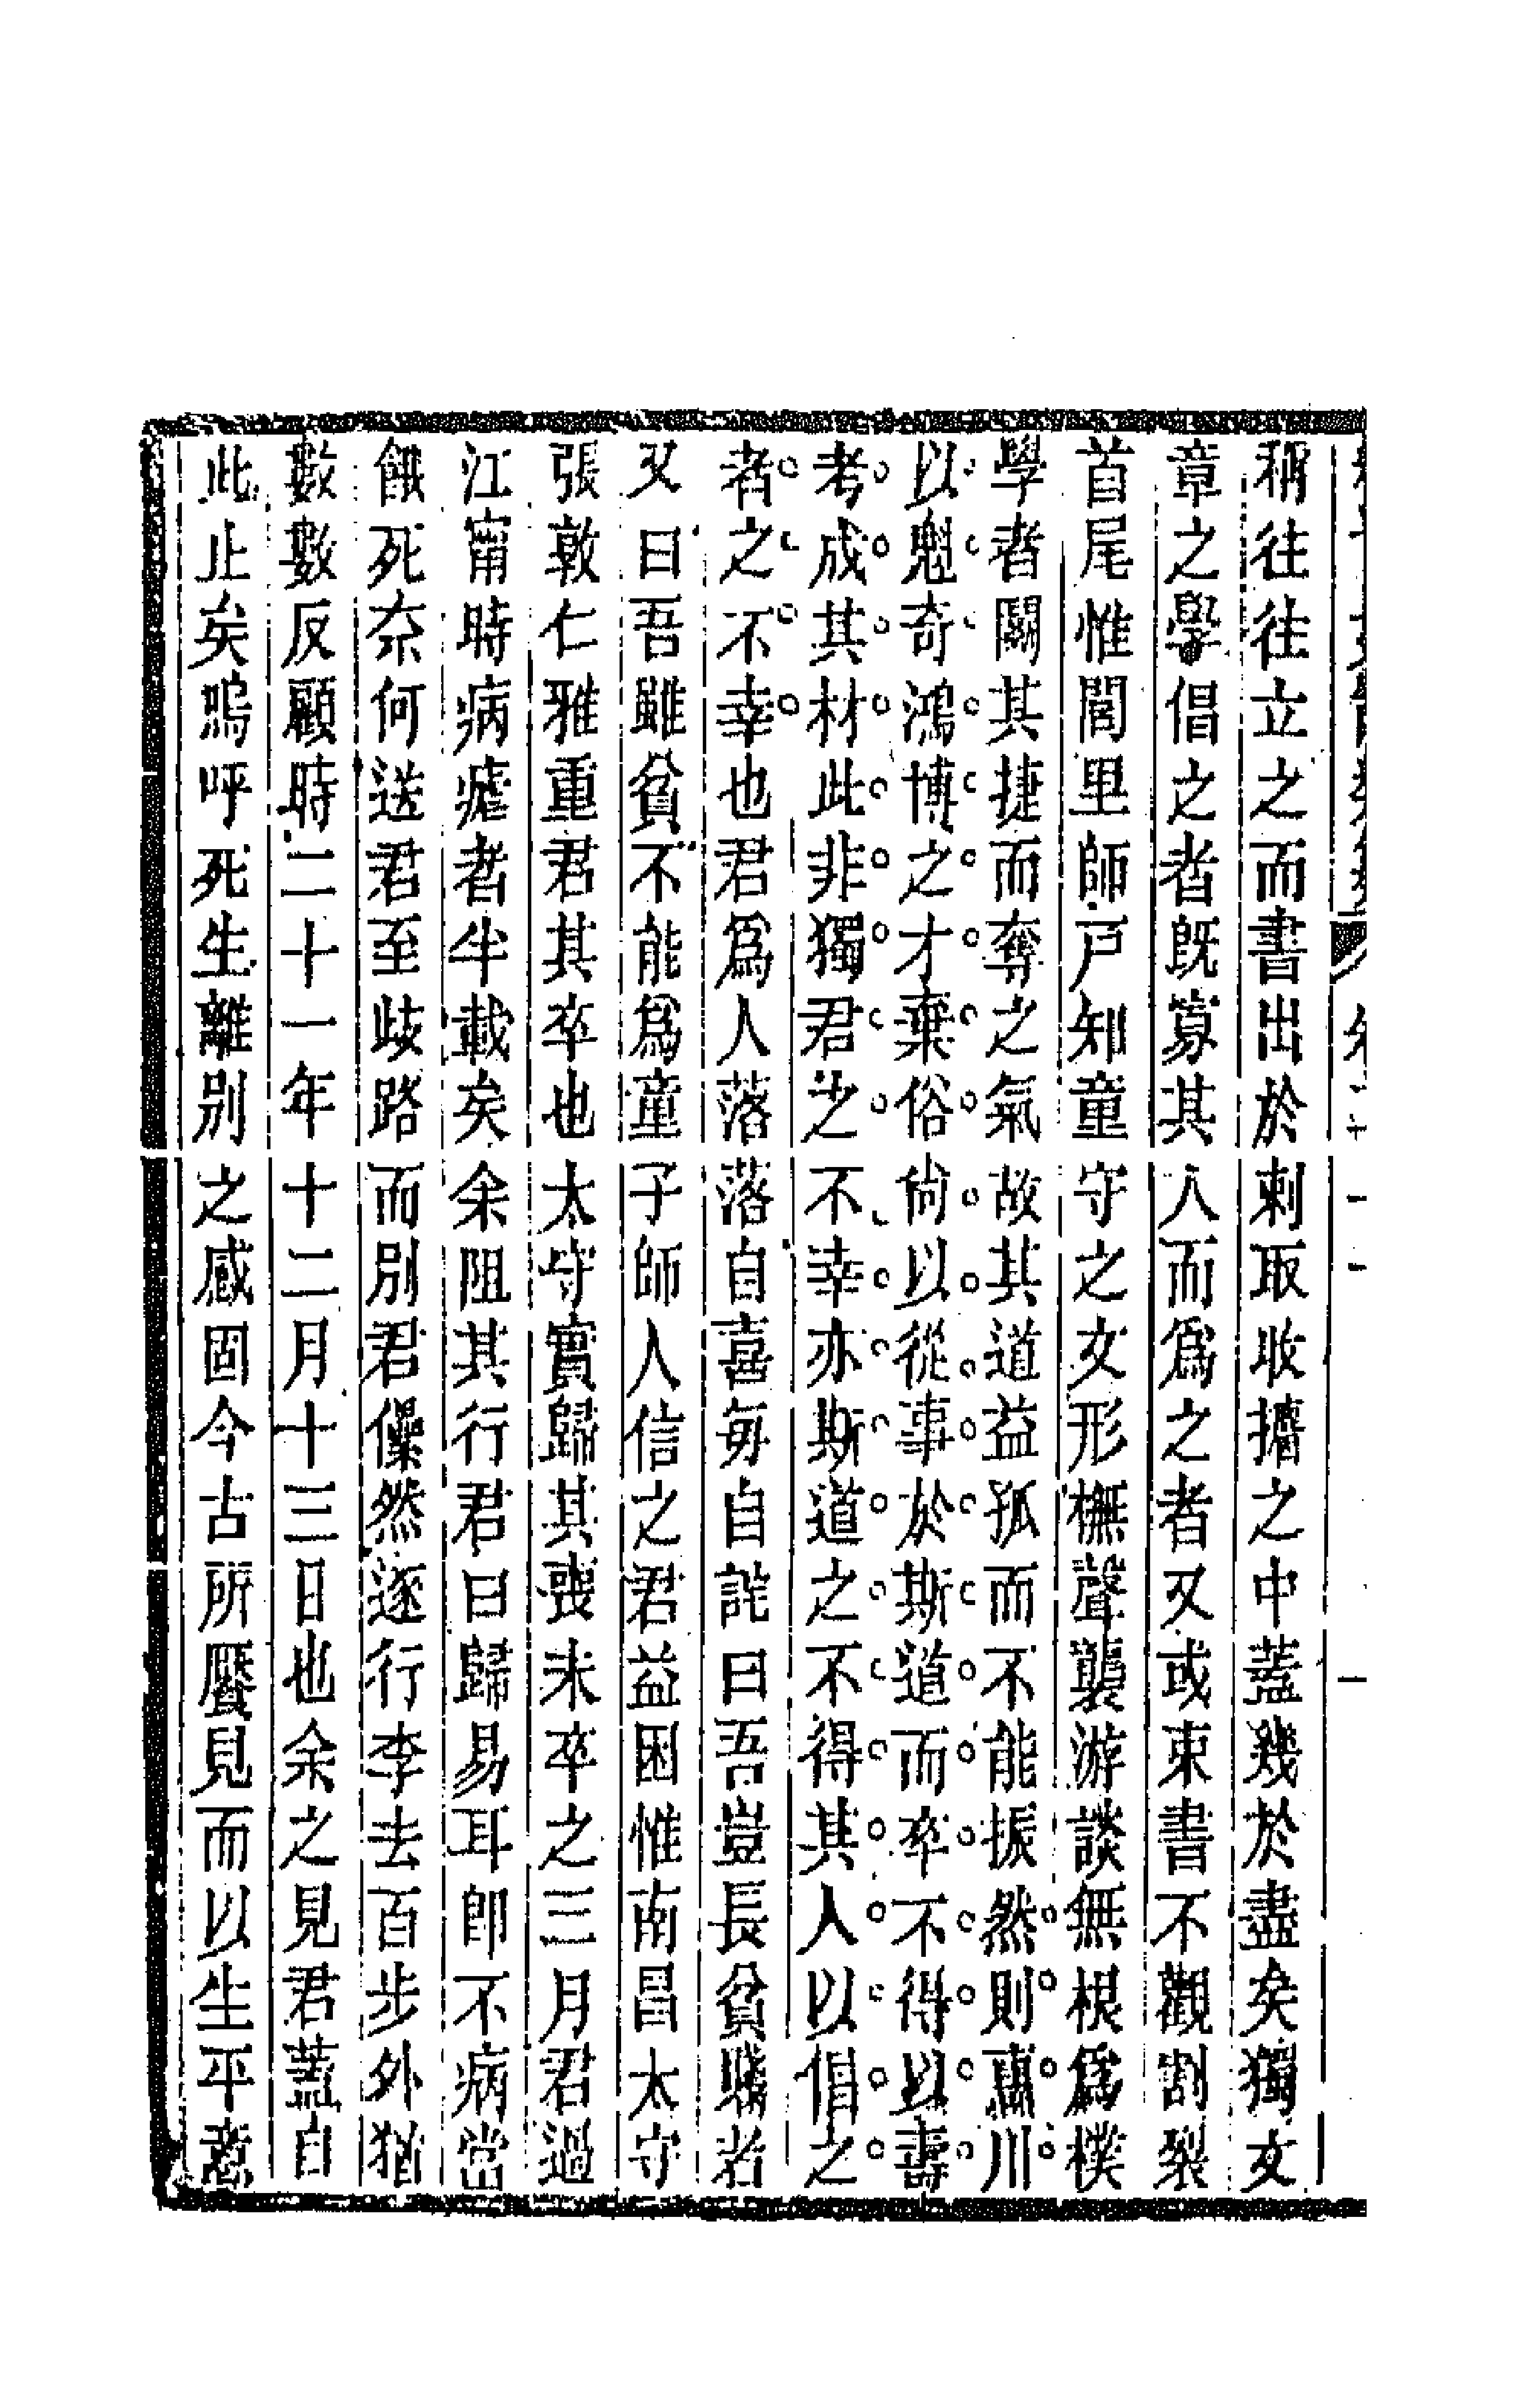 稱往往立之而書出於剌取收擣之中蓋幾於盡矣獨文
章之學倡之者旣寡其人而爲之者又或束書不觀割裂
首尾惟閭里師戸知童守之文形橅聲襲游談無根爲樸
學者關其捷而奪之氣故其道益孤而不能振然則蠡川
以魁奇鴻博之才棄俗尙以從事於斯道而卒不得以壽
考成其材此非獨君之不幸亦斯道之不得其人以倡之
者之不幸也君爲人落落自喜每自詫曰吾豈長貧賤者
又曰吾雖貧不能爲童子師人信之君益困惟南昌太守
張敦仁雅重君其卒也太守實歸其喪未卒之三月君過
江甯時病瘧者半載矣余阻其行君曰歸易耳卽不病當
餓死奈何送君至歧路而別君儽然逐行李去百步外猶
數數反顧時二十一年十二月十三日也余之見君蓋自
此止矣嗚呼死生離別之感固今古所饜見而以生平意